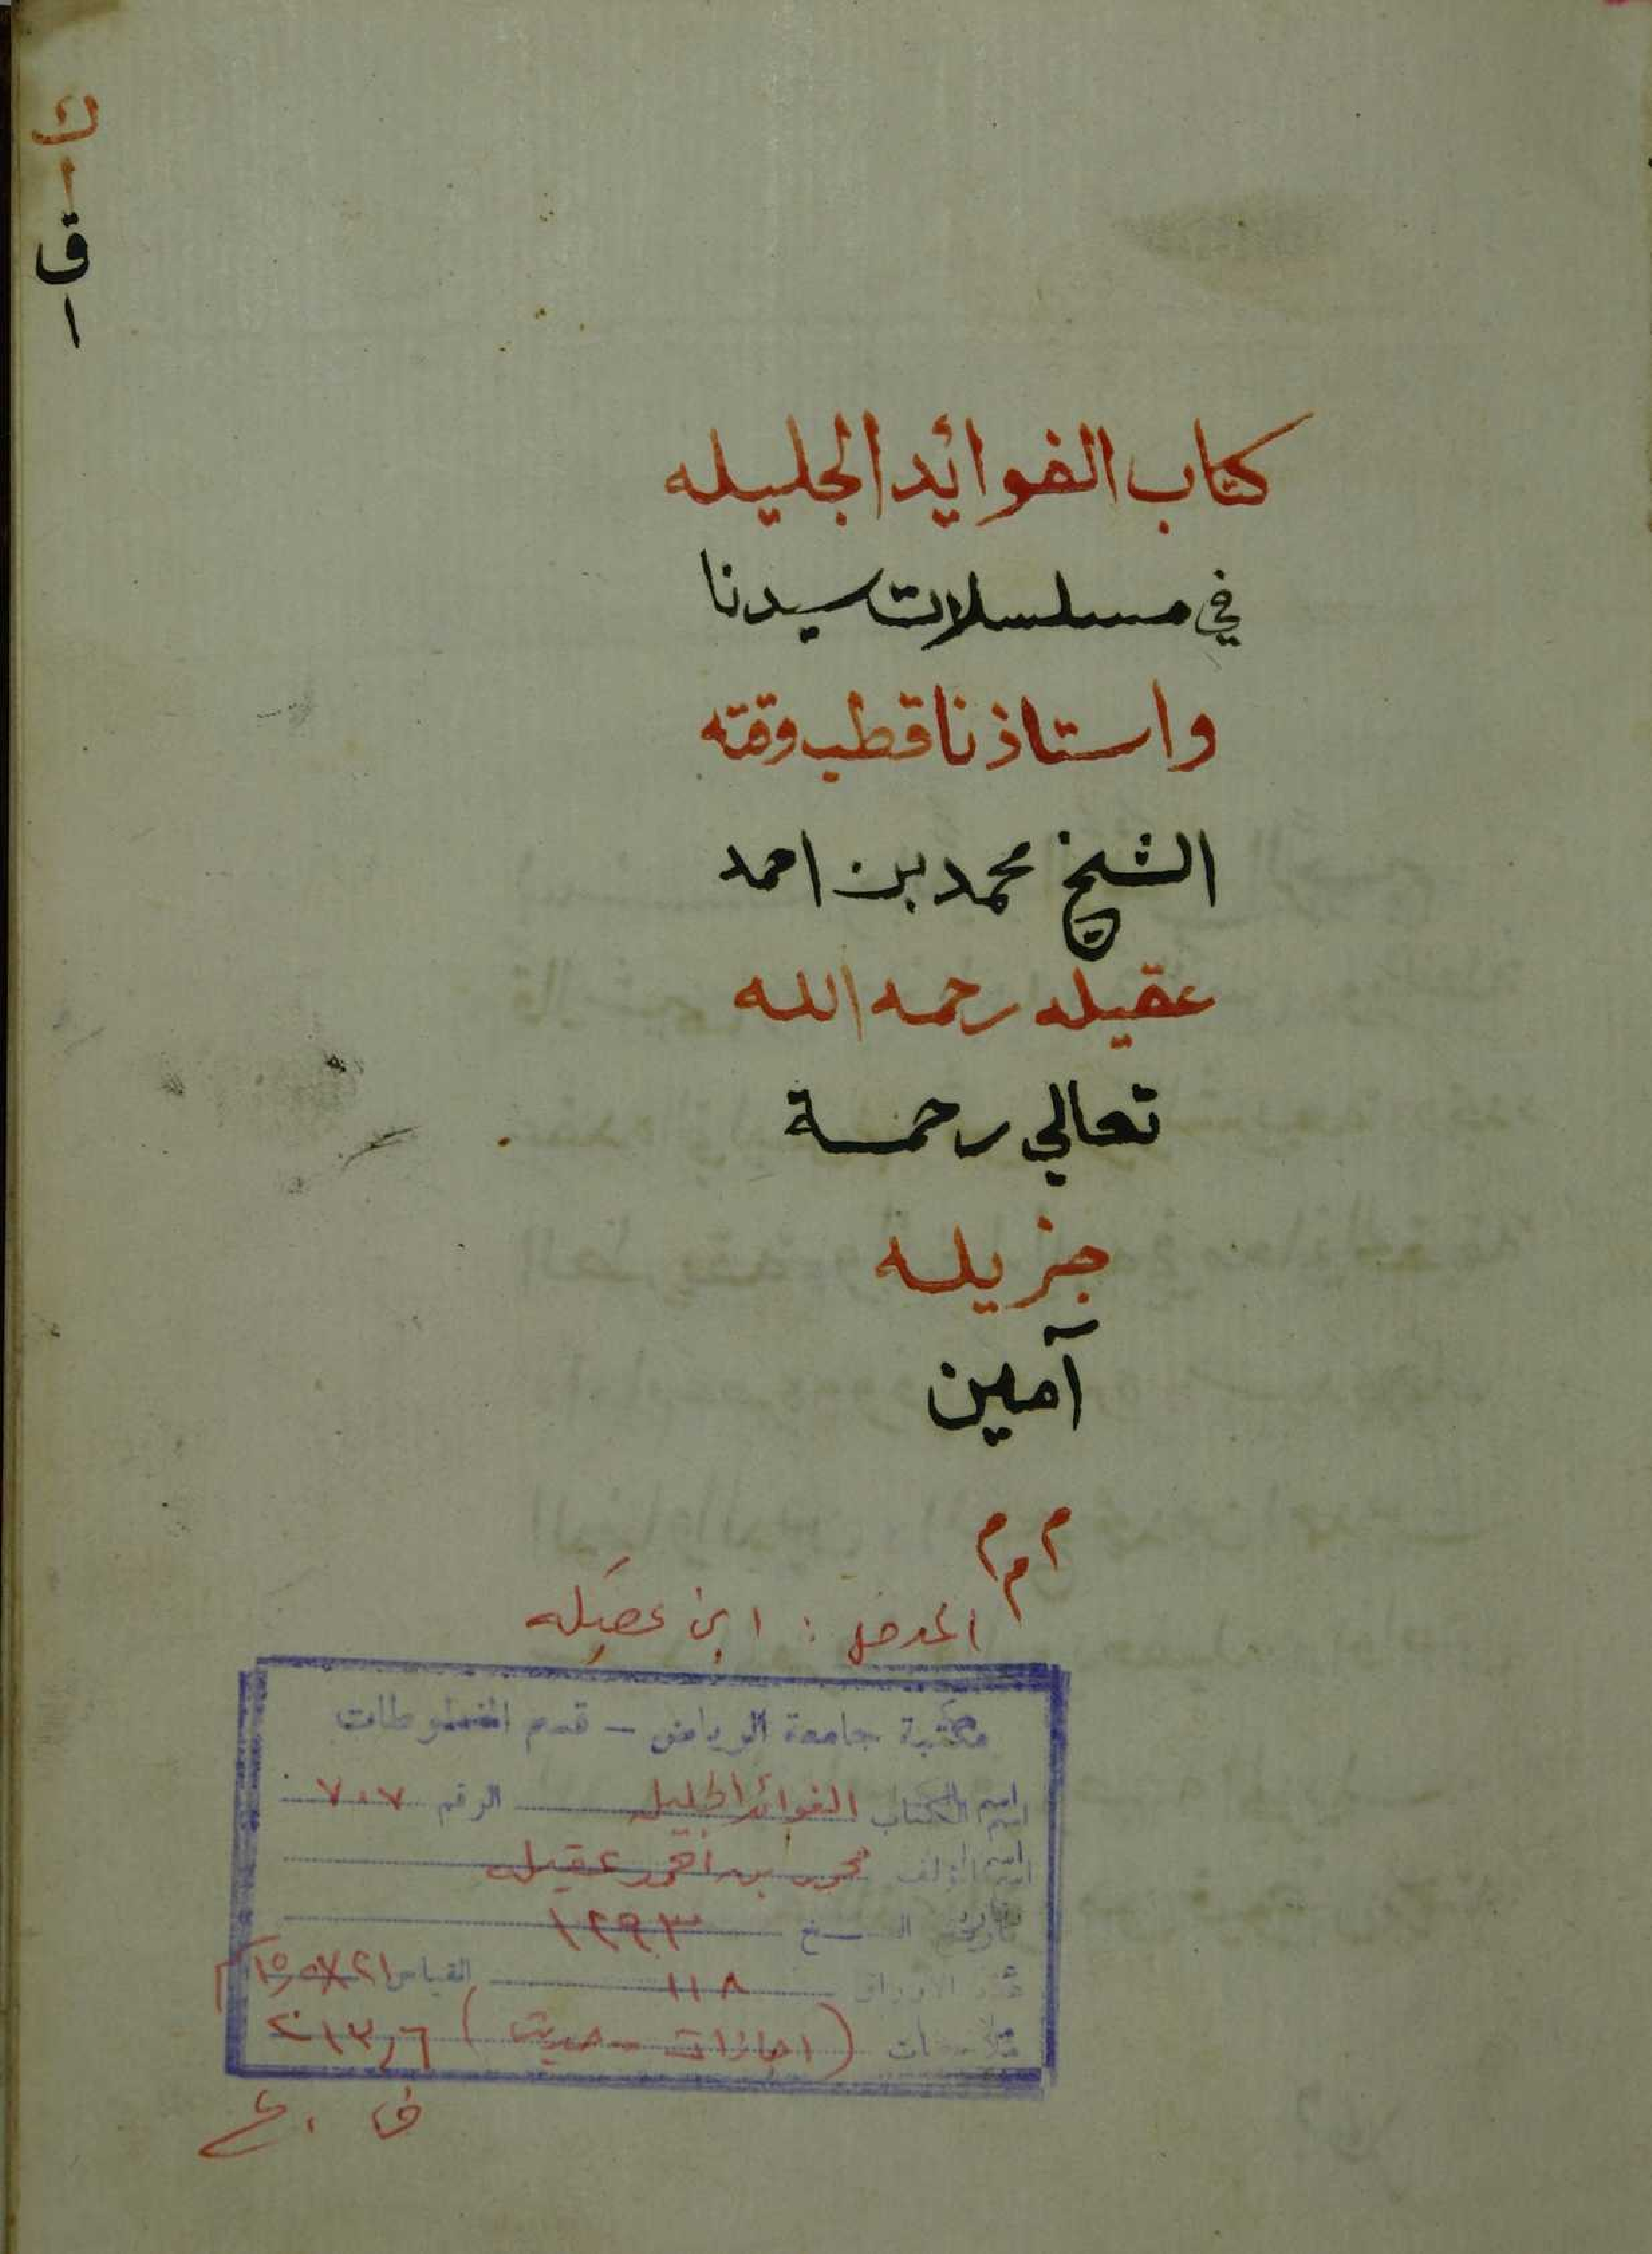 ك
١
ق
١
كتاب الفوائد الجليله
في مسلسلات سيدنا
واستاذنا قطب وقته
الشيخ محمد بن احمد
عقيله رحمه الله
تعالي رحمة
جزيله
آمين
م م م
المدخل : ابن عقيله
مكتبة جامعة الرياض - قسم المخطوطات
اسم الكتاب الفوائد الجليله الرقم ٧٠٧
اسم المؤلف محمد بن احمد عقيله
تاريخ النسخ ١٢٩٣
عدد الاوراق ١١٨ القياس ٢١×١٥٫٥ سم
ملاحظات (اجازات - حديث) ٢١٣٫٦
ف . ع